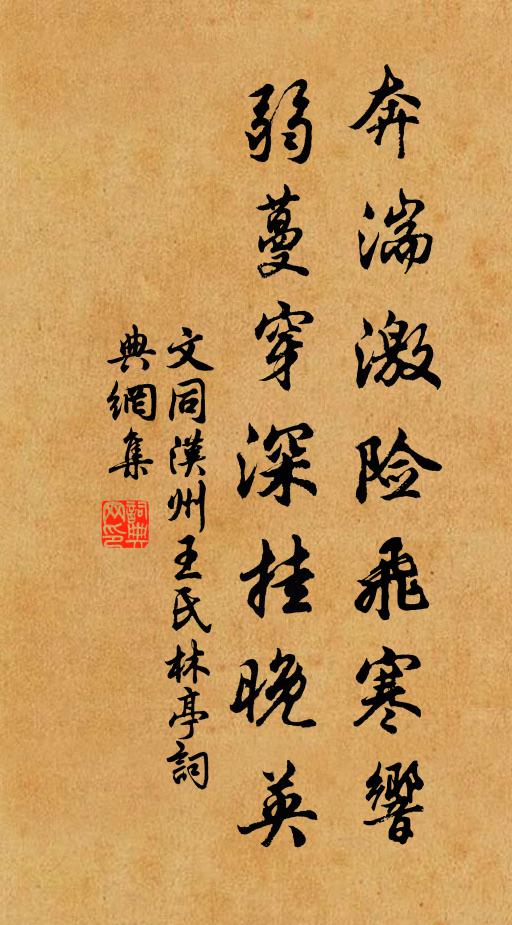 奔湍激险飛寒響
弱蔓穿深挂晚英
文同漢州王氏林亭詞
典網集
詞典
网印